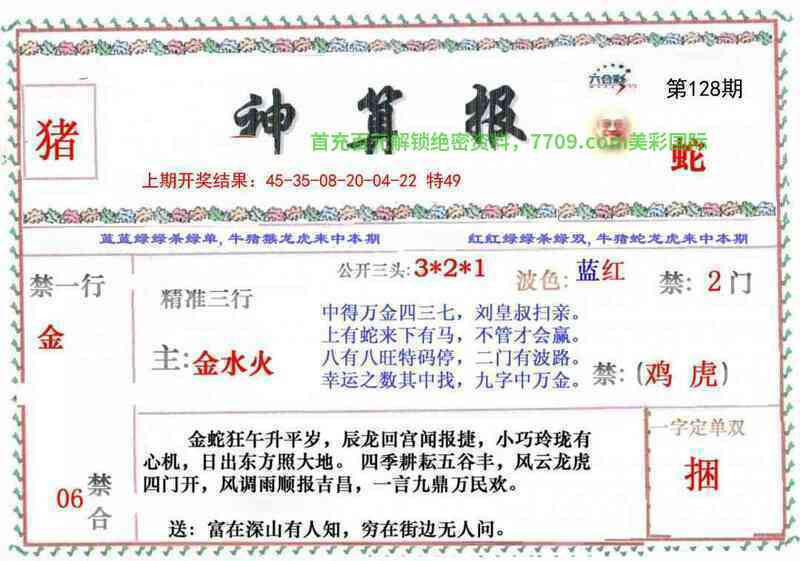 神算报
六合彩
第128期
猪
首充百元解锁绝密资料，7709.com美彩国际
蛇
上期开奖结果：45-35-08-20-04-22 特49
蓝蓝绿绿杀绿单,牛猪猴龙虎来中本期
红红绿绿杀绿双,牛猪蛇龙虎来中本期
禁一行
金
精准三行
主:金水火
公开三头:3*2*1
波色:蓝红
禁:2门
中得万金四三七，刘皇叔扫亲。
上有蛇来下有马，不管才会赢。
八有八旺特码停，二门有波路。
幸运之数其中找，九字中万金。
禁:(鸡 虎)
06禁合
金蛇狂午升平岁，辰龙回宫闻报捷，小巧玲珑有
心机，日出东方照大地。 四季耕耘五谷丰，风云龙虎
四门开，风调雨顺报吉昌，一言九鼎万民欢。
送：富在深山有人知，穷在街边无人问。
一字定单双
捆